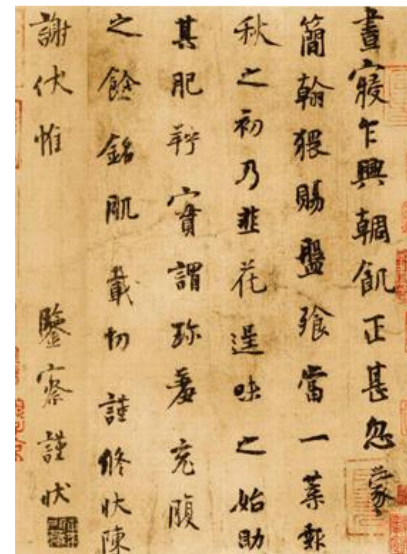 晝寢乍興輖飢正甚忽蒙
簡翰猥賜盤飱當一葉報
秋之初乃韭花逞味之始助
其肥羜實謂珍羞充腹
之餘銘肌載切謹修狀陳
謝伏惟 鑒察謹狀